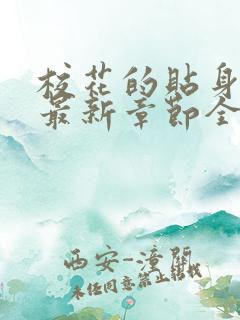 校花的贴身
最新章节全
西安-潼关
未经同意禁止转载